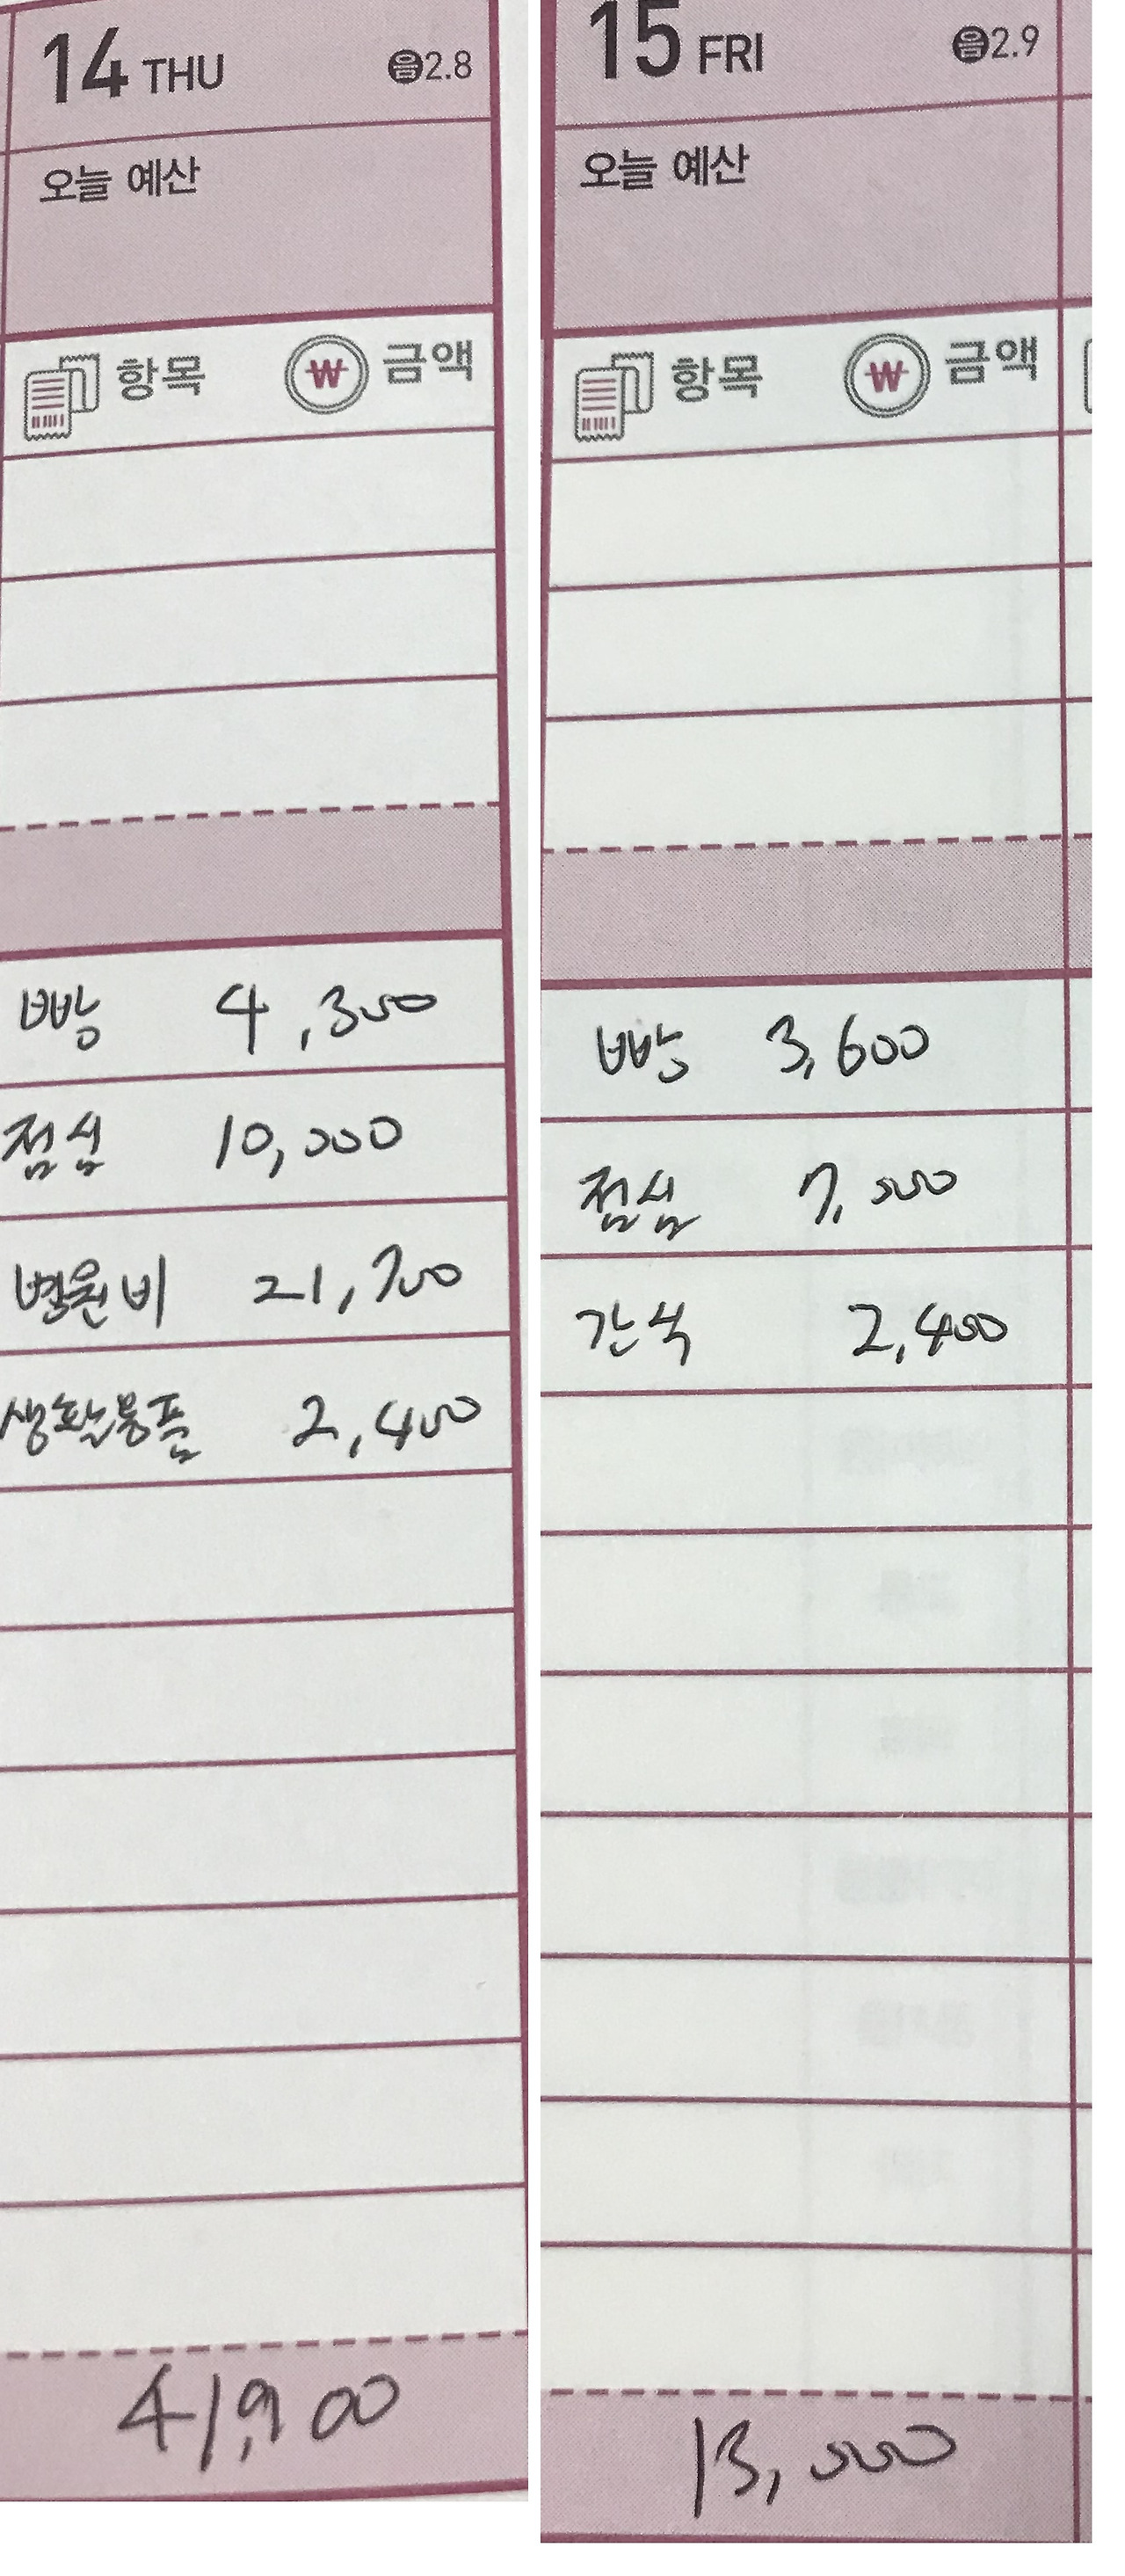 14 THU 음2.8
오늘 예산
항목 금액
빵 4,300
점심 10,000
병원비 21,700
생활용품 2,400
41,900
15 FRI 음2.9
오늘 예산
항목 금액
빵 3,600
점심 7,000
간식 2,400
13,000